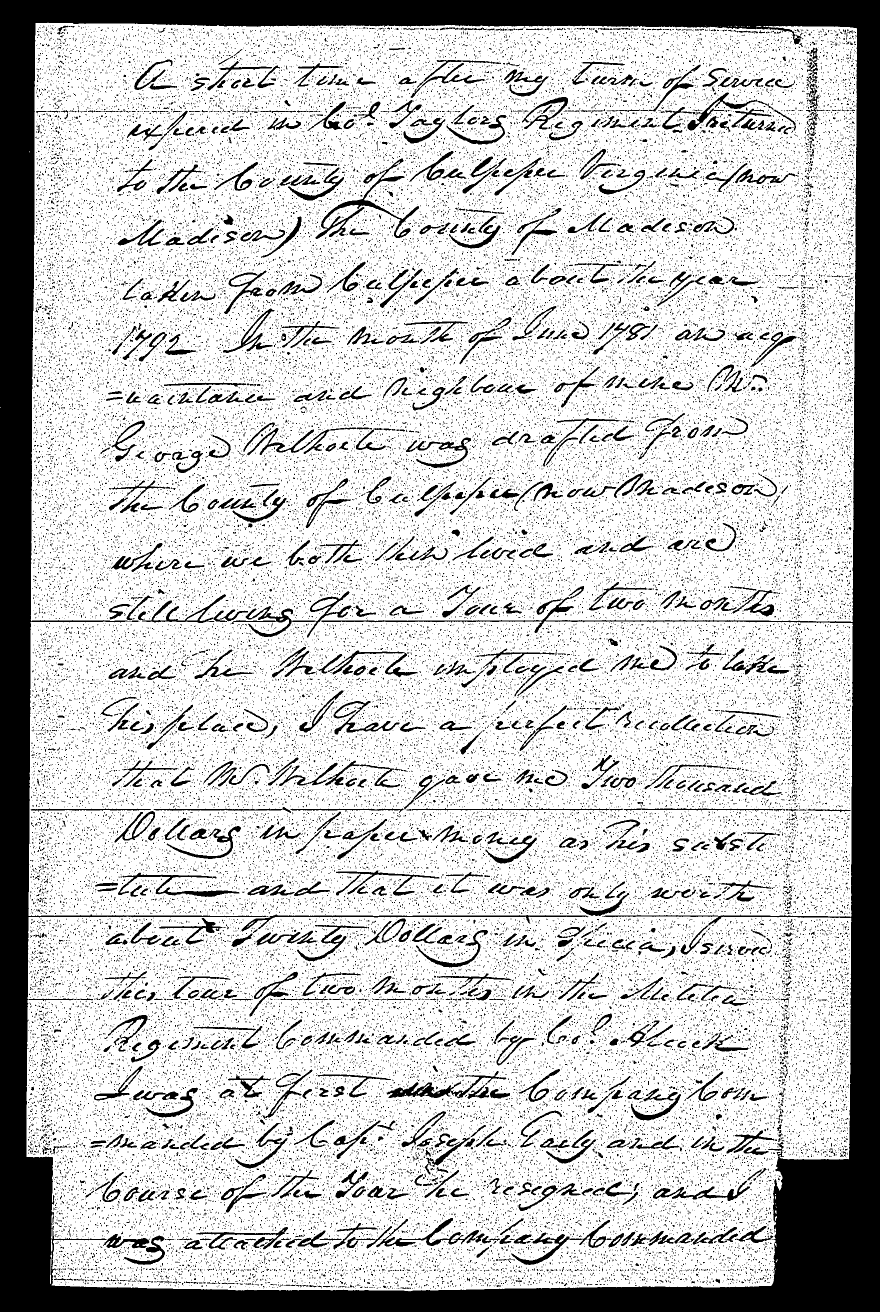 A short time after my turm of Service
expered in Col. Taylors Regiment I returned
to the County of Culpeper Virginia (now
Madison) The County of Madison
taken from Culpeper about the year
1792 In the month of June 1781 an acq
=uaintance and Neighbour of mine Mr.
George Wilhoite was drafted from
the County of Culpeper (now Madison)
where we both then lived and are
still living for a Tour of two months
and he Wilhoite imployed me to take
his place, I have a perfect recollection
that Mr. Wilhoite gave me Two thousand
Dollars in paper money as his substi
=tute and that it was only worth
about Twenty Dollars in Specia, I served
this tour of two months in the Militia
Regiment Commanded by Col.
I was at first the Company Com
=manded by Capt. Joseph Early and in the
Course of the Tour he resigned, and I
was attached to the Company Commanded